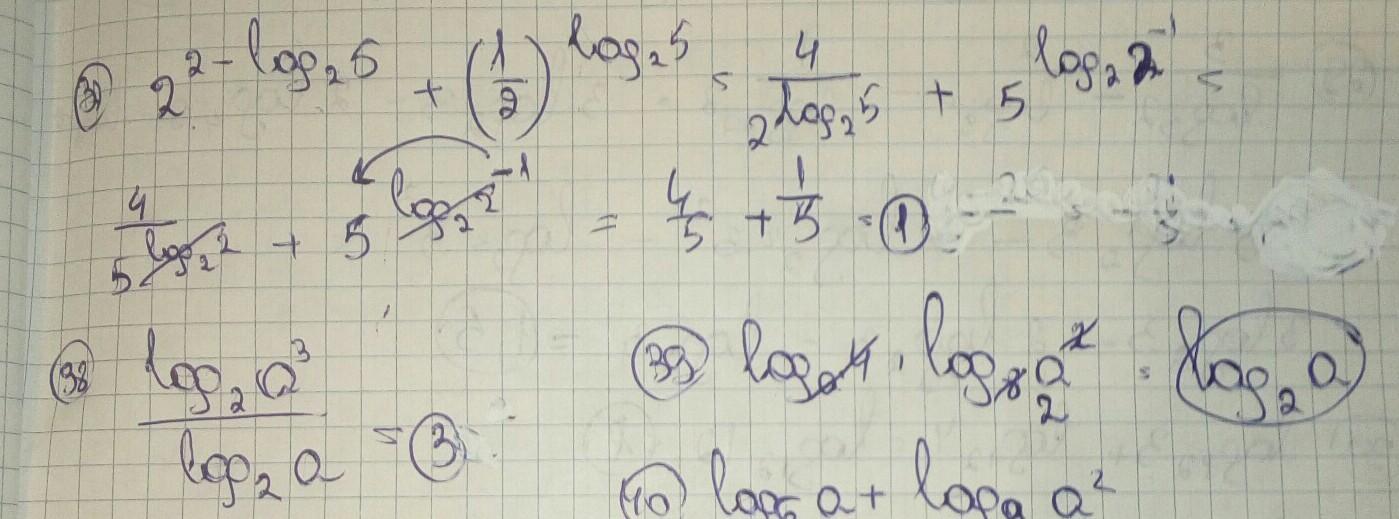 37 2^{2 - log_2 5} + (1/2)^{log_2 5} = 4/2^{log_2 5} + 5^{log_2 2^{-1}} =
4/5^{log_2 2} + 5^{log_2 2^{-1}} = 4/5 + 1/5 = 1
38 log_2 a^3 / log_2 a = 3
39 log_a 4 · log_8 a^2 = log_2 a
2
40 a + log_9 a^2